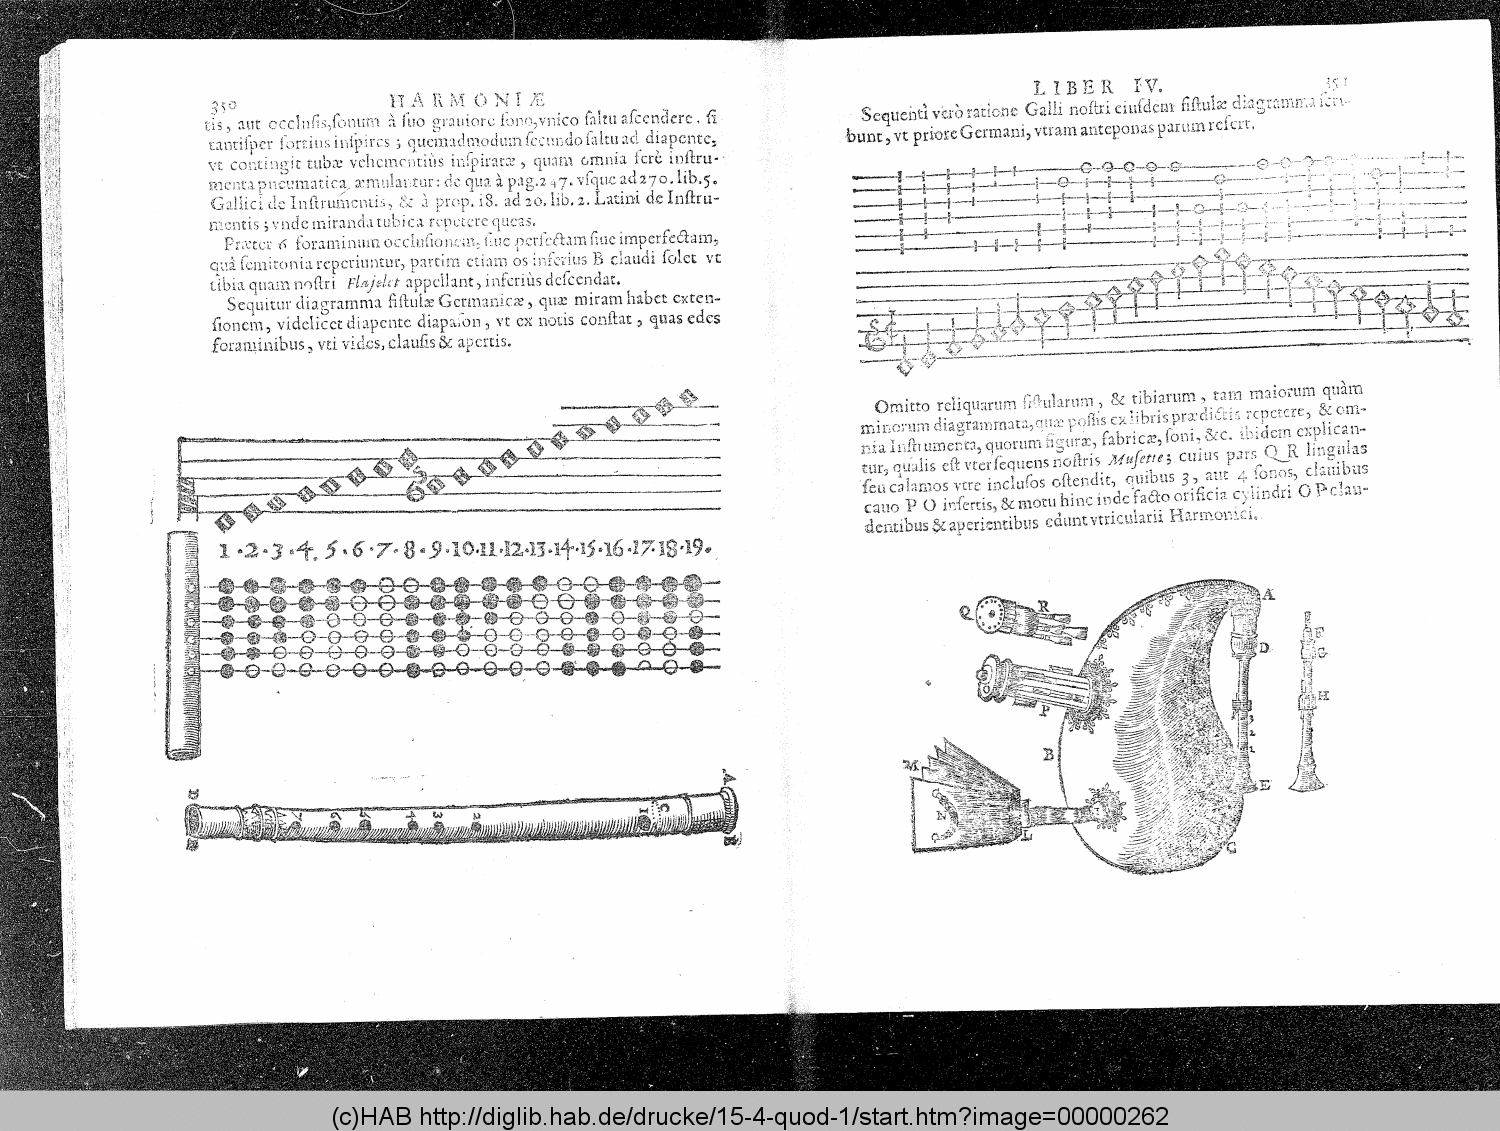 350 HARMONIÆ
tis, aut occlusis, sonum à suo grauiore sono, vnico saltu ascendere, si
tantisper fortius inspires; quemadmodum secundo saltu ad diapente,
vt contingit tubæ vehementiùs inspiratæ, quam omnia ferè instru-
menta pneumatica æmulantur: de qua à pag. 247. vsque ad 270. lib. 5.
Gallici de Instrumentis, & à prop. 18. ad 20. lib. 2. Latini de Instru-
mentis; vnde miranda tubica repetere queas.
Præter 6 foraminum occlusionem, siue perfectam siue imperfectam,
quâ semitonia reperiuntur, partim etiam os inferius B claudi solet vt
tibia quam nostri Flajolet appellant, inferiùs descendat.
Sequitur diagramma fistulæ Germanicæ, quæ miram habet exten-
sionem, videlicet diapente diapason, vt ex notis constat, quas edes
foraminibus, vti vides, clausis & apertis.
1 . 2 . 3 . 4 . 5 . 6 . 7 . 8 . 9 . 10 . 11 . 12 . 13 . 14 . 15 . 16 . 17 . 18 . 19 .
D 7 6 5 4 3 2 1 C A
B
LIBER IV. 351
Sequenti verò ratione Galli nostri eiusdem fistulæ diagramma scri-
bunt, vt priore Germani, vtram anteponas parum refert.
Omitto reliquarum fistularum, & tibiarum, tam maiorum quàm
minorum diagrammata, quæ possis ex libris prædictis repetere, & om-
nia Instrumenta, quorum figuræ, fabricæ, soni, &c. ibidem explican-
tur, qualis est vter sequens nostris Musette; cuius pars Q R lingulas
seu calamos vtre inclusos ostendit, quibus 3, aut 4 sonos, clauibus
cauo P O insertis, & motu hinc inde facto orificia cylindri O P clau-
dentibus & aperientibus edunt vtricularii Harmonici.
Q R A
F
D G
O P H
3
2
B 1
M E
N
O L
C
(c)HAB http://diglib.hab.de/drucke/15-4-quod-1/start.htm?image=00000262